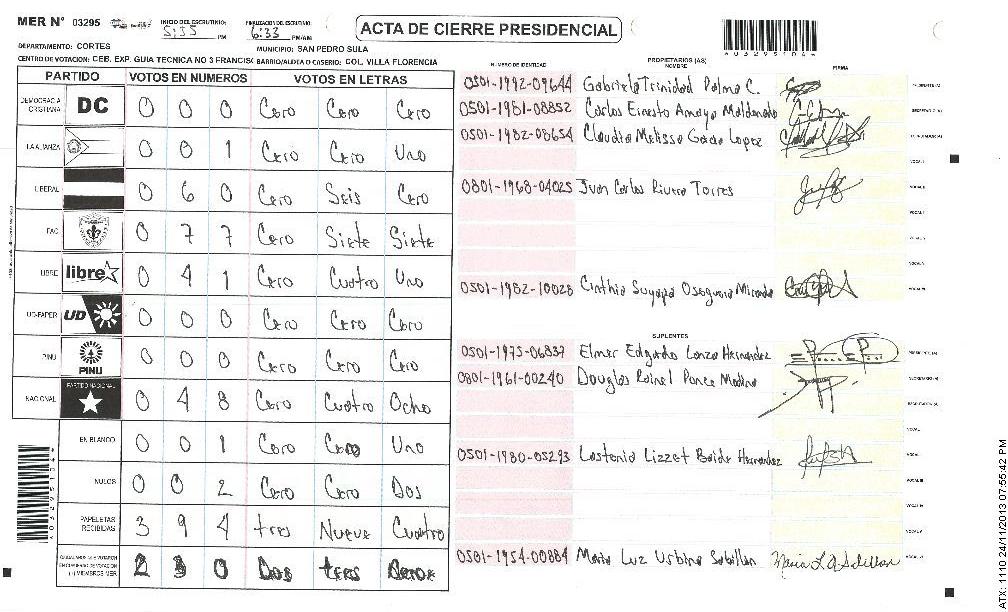 MER N° 03295
INICIO DEL ESCRUTINIO: 5:35 PM
FINALIZACIÓN DEL ESCRUTINIO: 6:33 PM/AM
ACTA DE CIERRE PRESIDENCIAL
DEPARTAMENTO: CORTES
MUNICIPIO: SAN PEDRO SULA
CENTRO DE VOTACION: CEB. EXP. GUIA TECNICA NO 3 FRANCISC BARRIO/ALDEA O CASERIO: COL. VILLA FLORENCIA
PARTIDO VOTOS EN NUMEROS VOTOS EN LETRAS
DEMOCRACIA CRISTIANA DC 0 0 0 Cero Cero Cero
LA ALIANZA 0 0 1 Cero Cero Uno
LIBERAL 0 6 0 Cero Seis Cero
PAC 0 7 7 Cero Siete Siete
LIBRE libre 0 4 1 Cero Cuatro Uno
UD-FAPER UD 0 0 0 Cero Cero Cero
PINU PINU 0 0 0 Cero Cero Cero
NACIONAL PARTIDO NACIONAL 0 4 8 Cero Cuatro Ocho
EN BLANCO 0 0 1 Cero Cero Uno
NULOS 0 0 2 Cero Cero Dos
PAPELETAS RECIBIDAS 3 9 4 tres Nueve Cuatro
2 3 0 Dos tres
NUMERO DE IDENTIDAD
PROPIETARIOS (AS)
NOMBRE
FIRMA
0501-1992-09644 Gabriela Trinidad Palma C. PRESIDENTE (A)
0501-1981-08852 Carlos Ernesto Amaya Maldonado SECRETARIO (A)
0501-1982-08654 Claudia Melissa Garcia Lopez
VOCAL I
0801-1968-04025 Juan Carlos Rivera Torres VOCAL II
0501-1982-10028 Cinthia Suyapa Oseguera Miranda
SUPLENTES
0501-1975-06837 Elmer Edgardo Lanza Hernandez PRESIDENTE (A)
0801-1961-00240 Douglas Roinel Ponce Medina SECRETARIO (A)
ESCRUTADOR (A)
0501-1980-05293 Lastenia Lizzet Baide Hernandez
0501-1954-00884 Maria Luz Urbina Sabillon
Maria L. A Sabillon
*03295104*
ATX: 1110 24/11/2013 07:55:42 PM